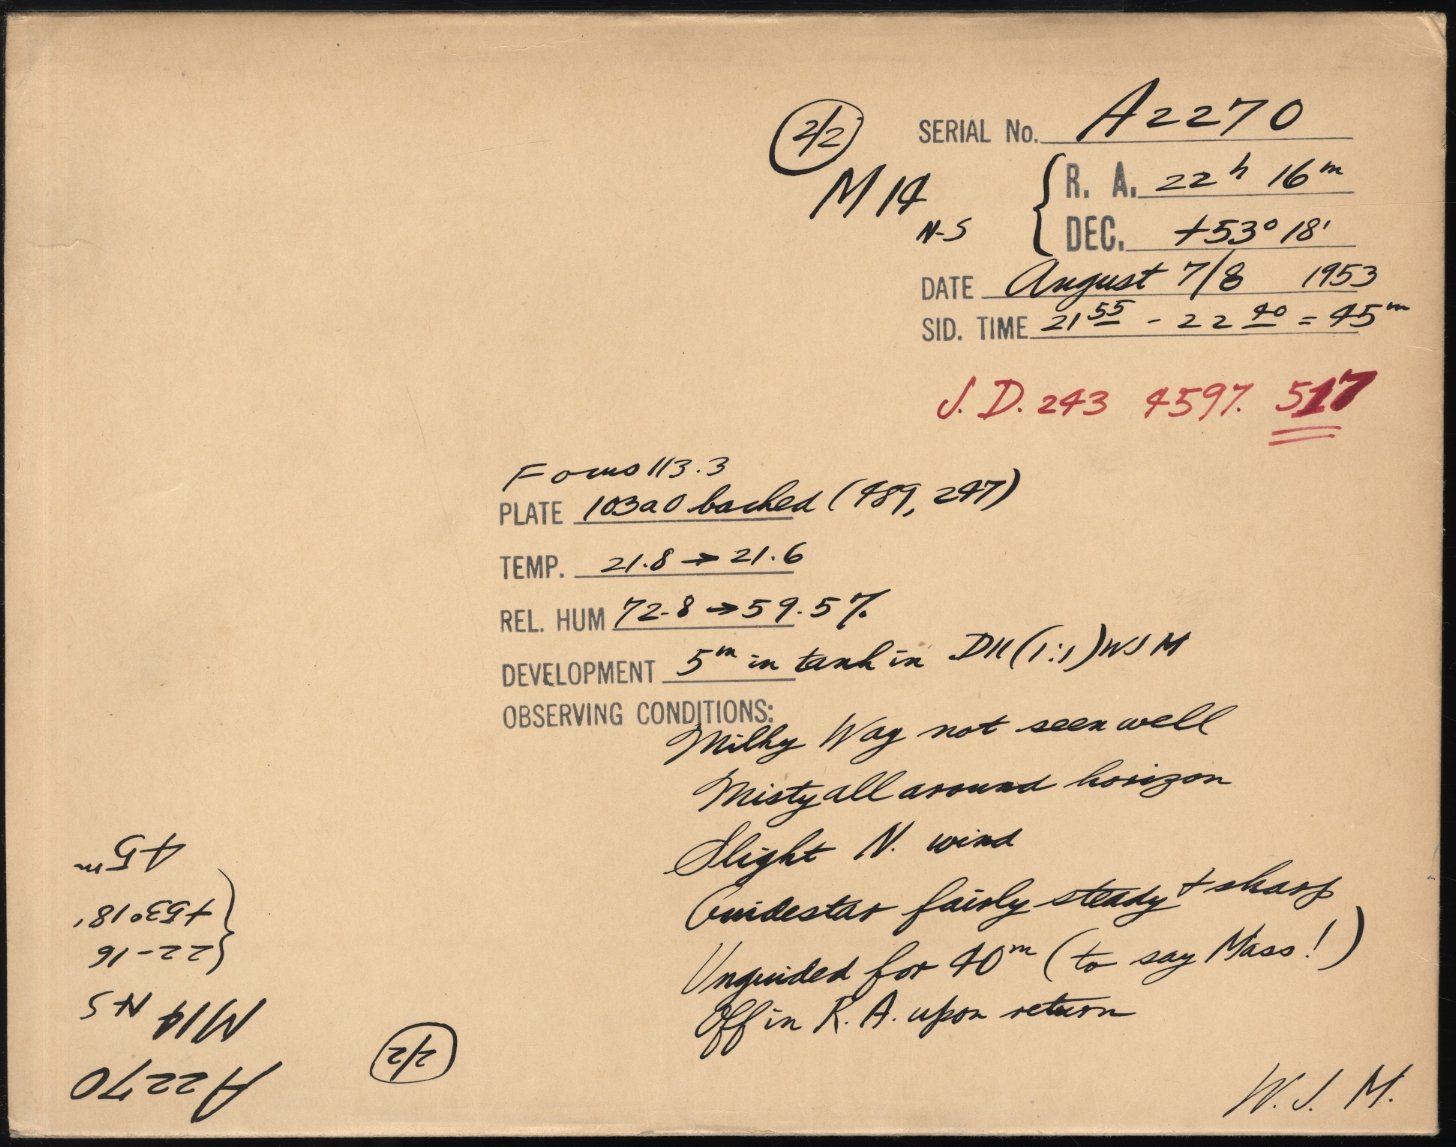 2/2
SERIAL No. A2270
M 14
N-S
{ R. A. 22h 16m
DEC. +53° 18'
DATE August 7/8 1953
SID. TIME 21 55 - 22 40 = 45m
J. D. 243 4597. 517
Focus 113.3
PLATE 103a0 backed (489, 247)
TEMP. 21.8 → 21.6
REL. HUM 72.8 → 59.5%
DEVELOPMENT 5m in tank in D11 (1:1) WJM
OBSERVING CONDITIONS:
Milky Way not seen well
Misty all around horizon
Slight N. wind
Guidestar fairly steady + sharp
Unguided for 40m (to say Mass!)
Off in R. A. upon return
W. J. M.
2/2
A2270
M14 N-S
{ 22-16
+53°18'
45m